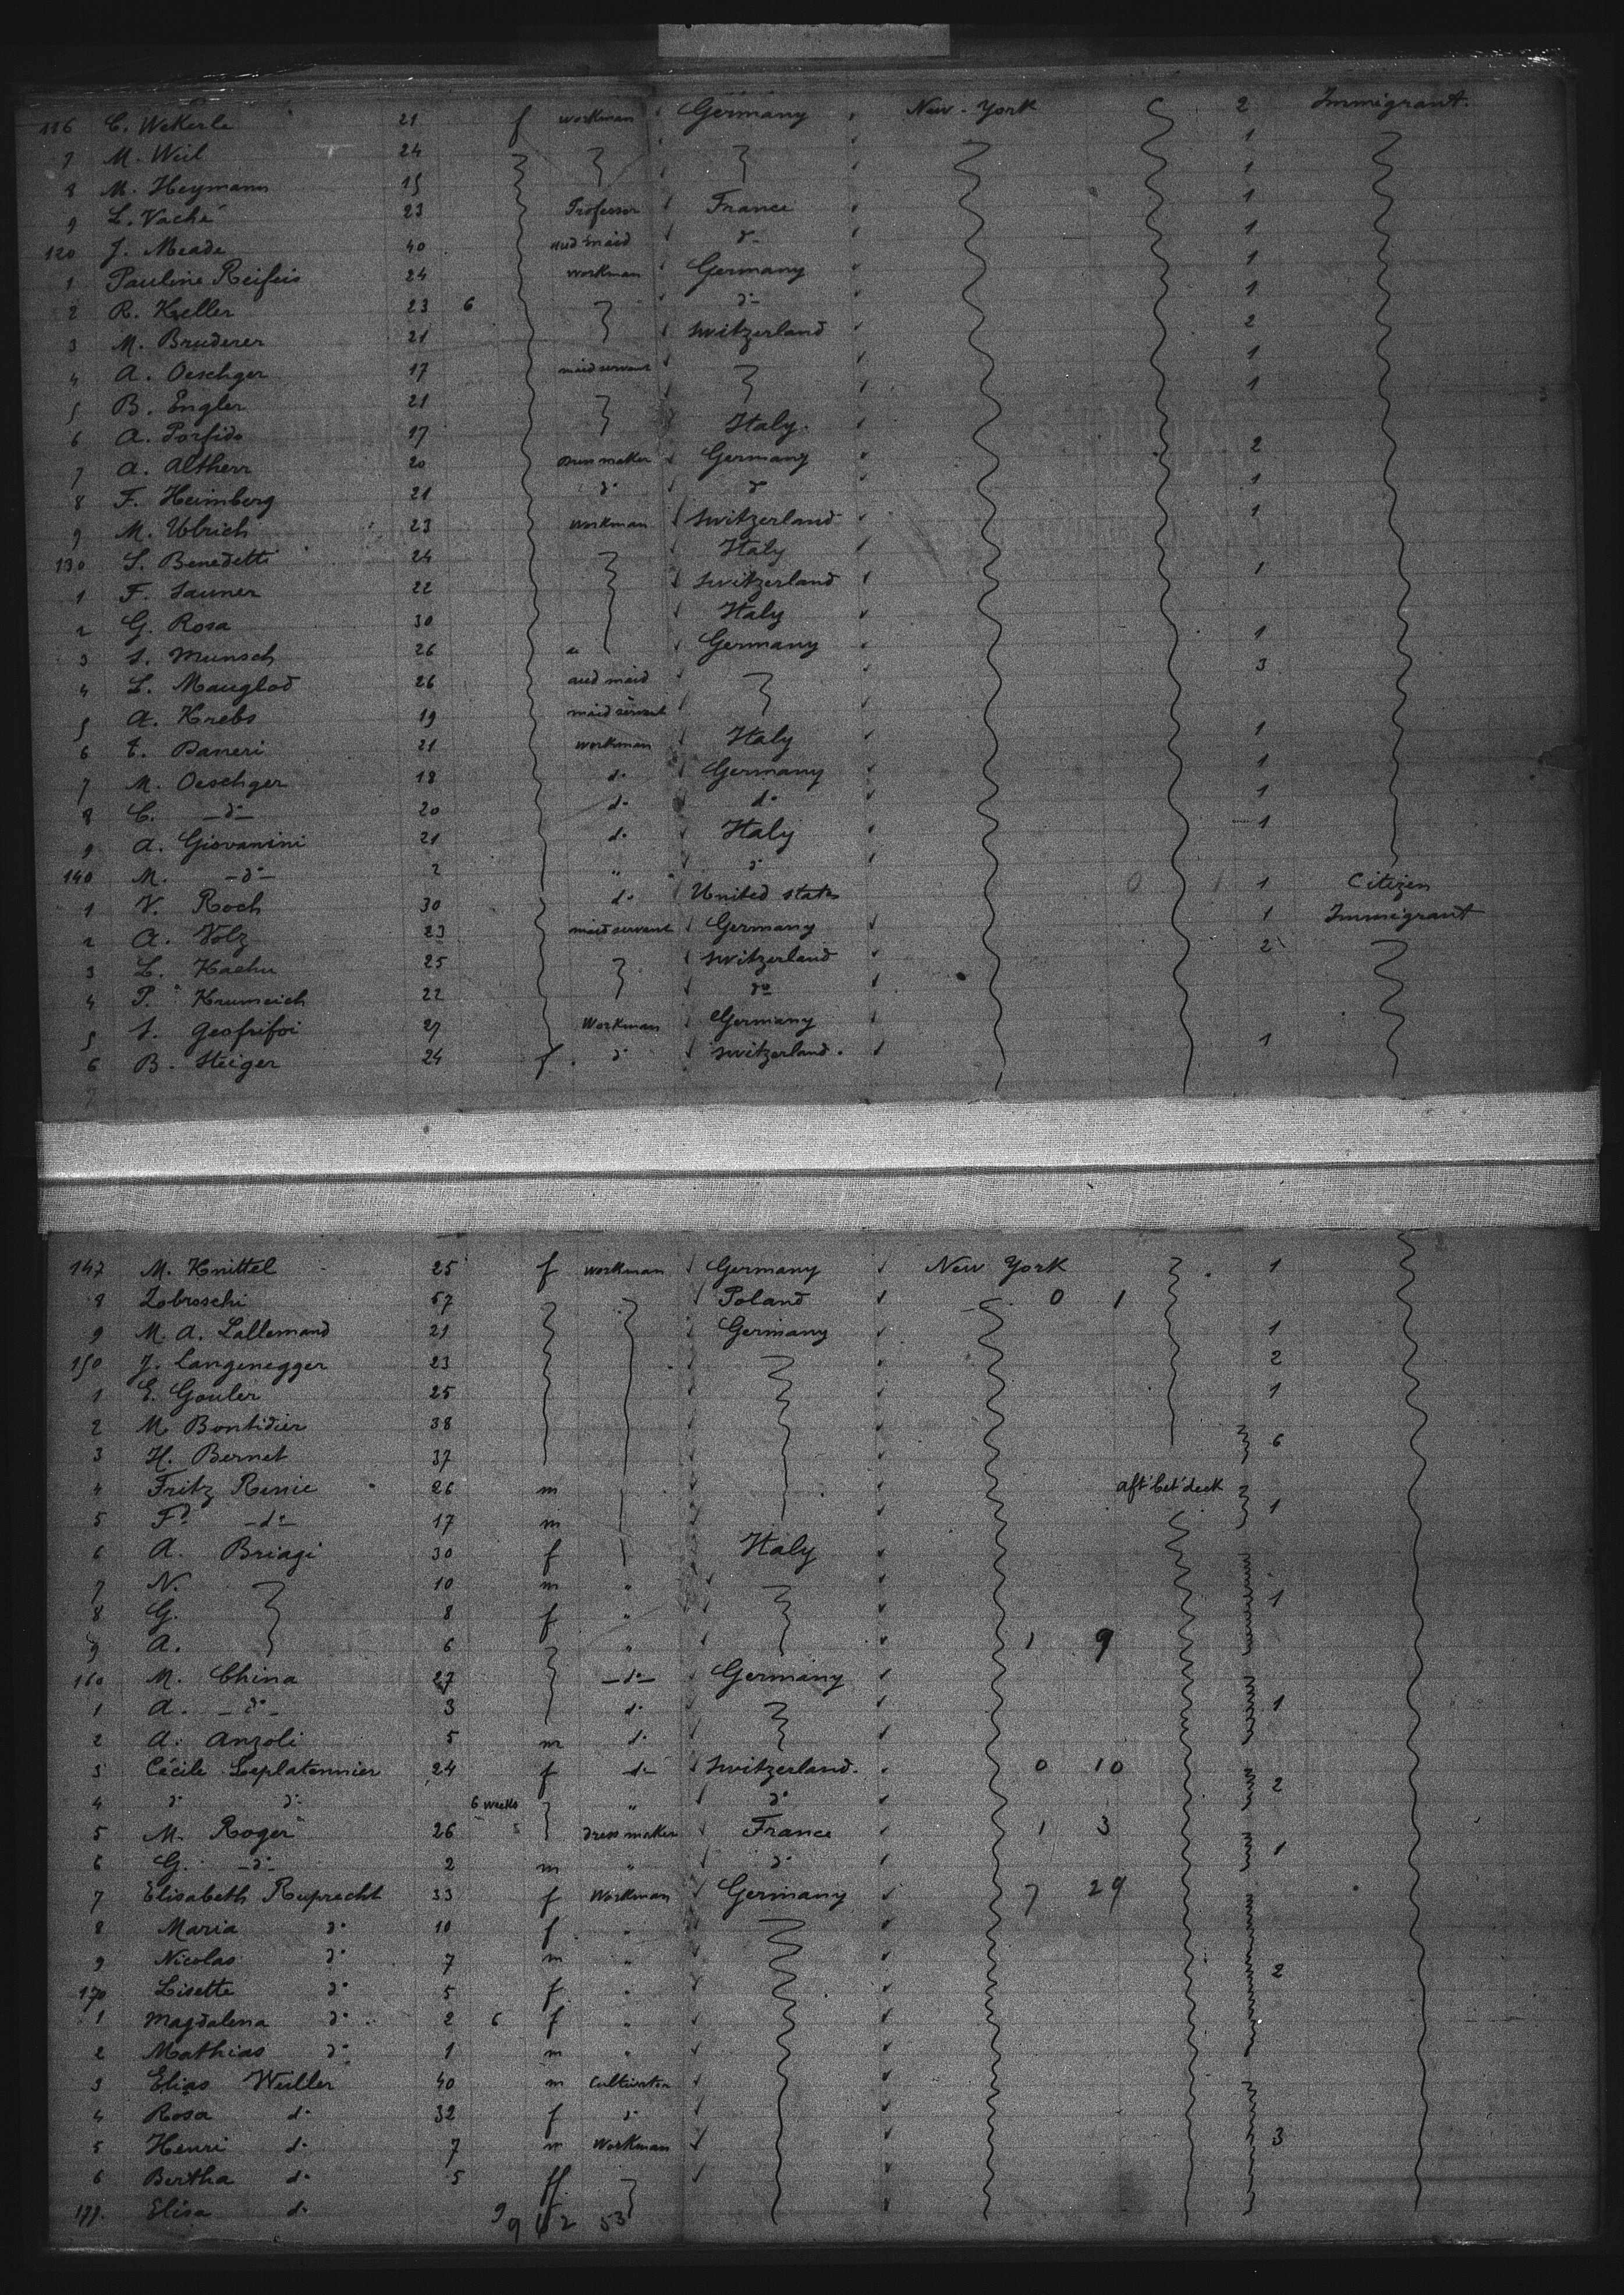 116 C. Wekerle 21 f workman Germany New-York 2 Immigrant.
7 M. Weil 24 1
8 M. Heymann 15 1
9 L. Vaché 23 Professor France 1
120 J. Meade 40 maid d° 1
1 Pauline Reifeis 24 workman Germany 1
2 R. Keller 23 6 d° 1
3 M. Bruderer 21 switzerland 2
4 A. Oeschger 17 maid servant 1
5 B. Engler 21 1
6 A. Porfido 17 Italy.
7 A. Altherr 20 Dress maker Germany 2
8 F. Heimberg 21 d° d° 1
9 M. Ulrich 23 workman switzerland 1
130 S. Benedetti 24 Italy
1 F. Sauner 22 switzerland 1
2 G. Rosa 30 Italy
3 S. Munsch 26 Germany 1
4 L. Mauglod 26 maid 3
5 A. Krebs 19 maid servant
6 E. Daneri 21 workman Italy 1
7 M. Oeschger 18 d° Germany 1
8 C. -d°- 20 d° d° 1
9 A. Giovanini 21 d° Italy 1
140 M. -d°- 2 " d°
1 V. Roch 30 d° United states 0 1 1 Citizen
2 A. Volz 23 maid servant Germany 1 Immigrant
3 L. Kaehu 25 switzerland 2
4 P. Krumeich 22 d°
5 S. Geofrifoi 27 Workman Germany
6 B. Steiger 24 f d° switzerland. 1
7
147 M. Knittel 25 f workman Germany New York 1
8 Zobroschi 57 Poland 0 1
9 M. A. Lallemand 21 Germany 1
150 J. Langenegger 23 2
1 E. Gouler 25 1
2 M. Bontidier 38
3 H. Bernet 37 6
4 Fritz Renie 26 m aft bet deck
5 Fd -d°- 17 m 1
6 A. Briagi 30 f Italy
7 N. 10 m "
8 G. 8 f " 1
9 A. 6 " 1 9
160 M. China 27 -d°- Germany
1 A. -d°- 3 d° 1
2 A. Anzoli 5 m d°
3 Cécile Leplatennier 24 f d° Switzerland. 0 10
4 d° d° 6 weeks " d° 2
5 M. Roger 26 dress maker France 1 3
6 G. -d°- 2 m " d° 1
7 Elisabeth Ruprecht 33 f Workman Germany 7 29
8 Maria d° 10 f "
9 Nicolas d° 7 m "
170 Lisette d° 5 f " 2
1 Magdalena d° 2 6 f "
2 Mathias d° 1 m "
3 Elias Weiller 40 m Cultivator
4 Rosa d° 32 f d°
5 Henri d° 7 m Workman 3
6 Bertha d° 5 ff
177. Elisa d° 9